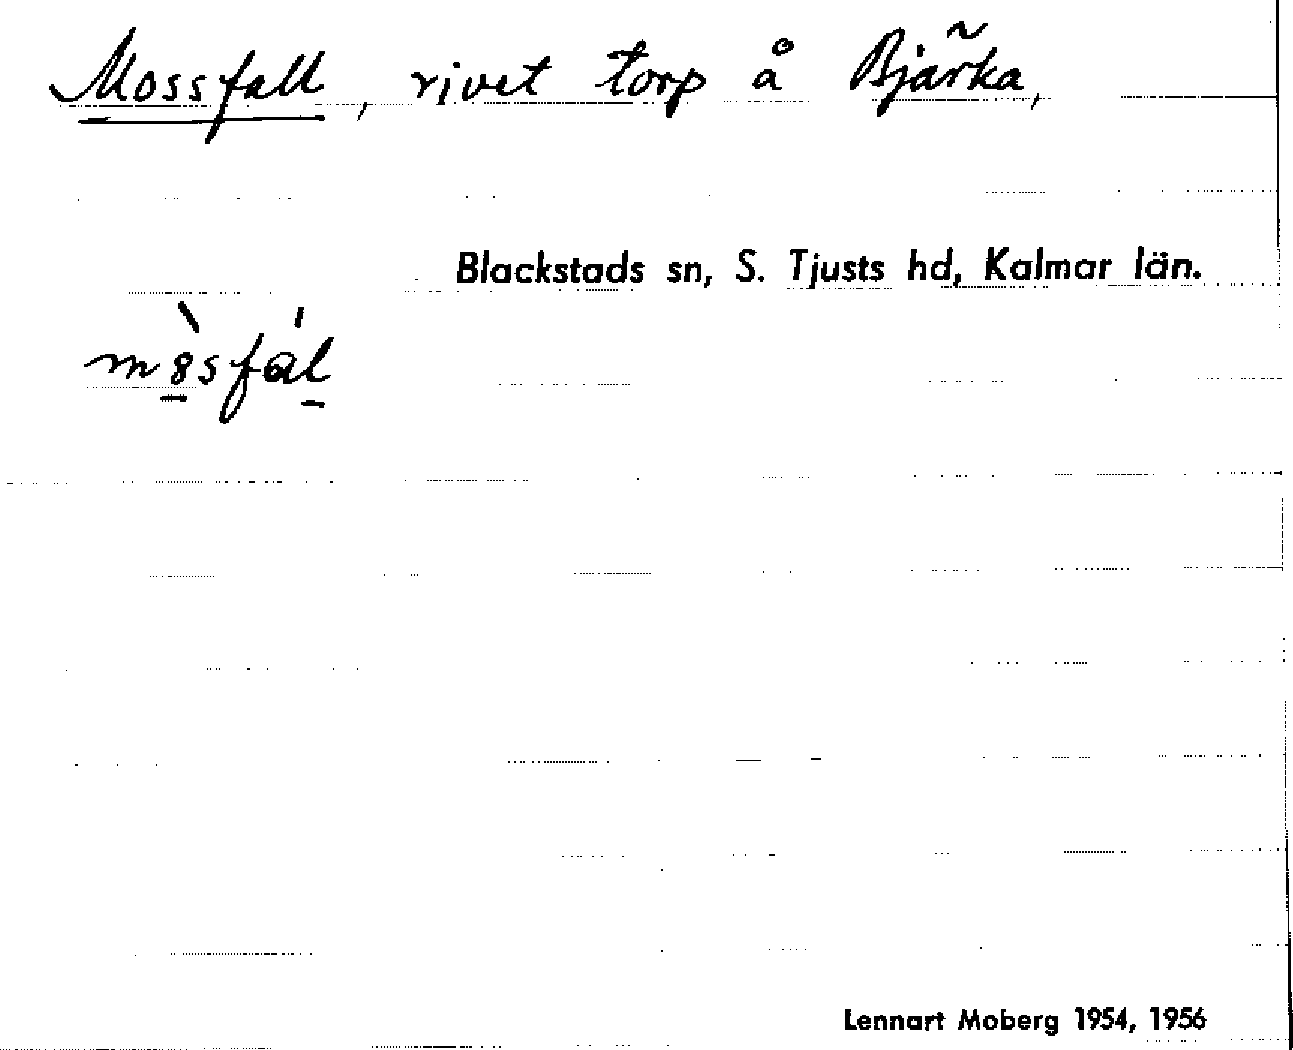 Mossfall, rivet torp å Bjärka,
Blackstads sn, S. Tjusts hd, Kalmar län.
Lennart Moberg 1954, 1956